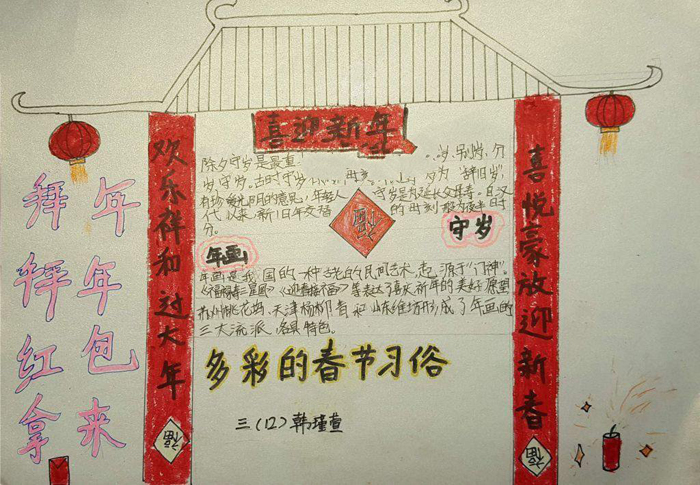 喜迎新年
欢乐祥和过大年
喜悦豪放迎新春
拜年拜年
红包拿来
除夕守岁是最重
岁守岁。古时守岁
为"辞旧岁",
年轻人
守岁是为延长父母寿。自汉
代以来,新旧年交替
的时刻
分。
福
守岁
年画
年画是我国的一种古老的民间艺术,起源于"门神"。
等表达了喜庆新年的美好愿望
苏州桃花坞,天津杨柳青和山东潍坊形成了年画的
三大流派,各具特色。
多彩的春节习俗
三(12)韩瑾萱
福
福